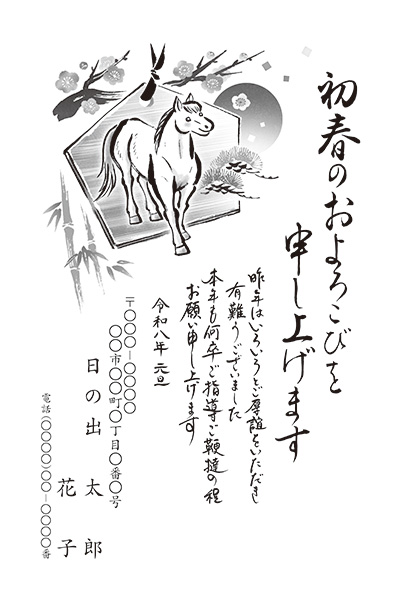 初春のおよろこびを
申し上げます
昨年はいろいろとご厚誼をいただき
有難うございました
本年も何卒ご指導ご鞭撻の程
お願い申し上げます
令和八年 元旦
〒〇〇〇-〇〇〇〇
〇〇市〇〇町〇丁目〇番〇号
日の出 太郎
花子
電話(〇〇〇〇)〇〇-〇〇〇〇番